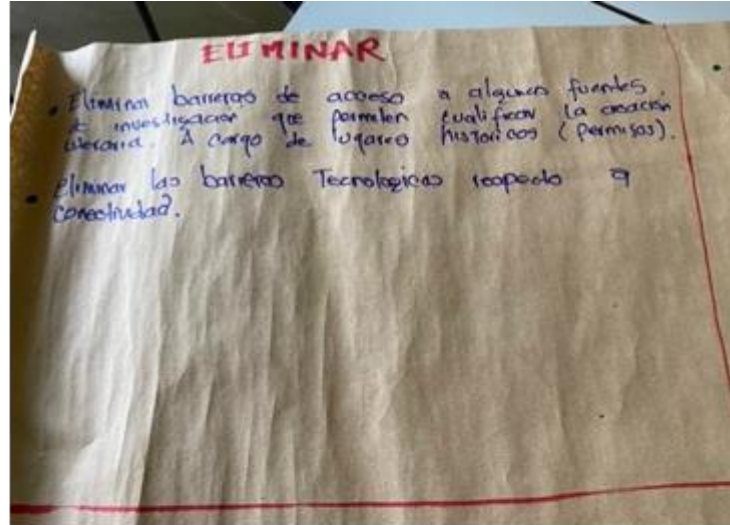 ELIMINAR
• Eliminar barreras de acceso a algunas fuentes.
de investigación que permiten cualificar la creación
literaria. A cargo de lugares historicos (permisos).
• Eliminar las barreras Tecnologicas respecto a
conectividad.